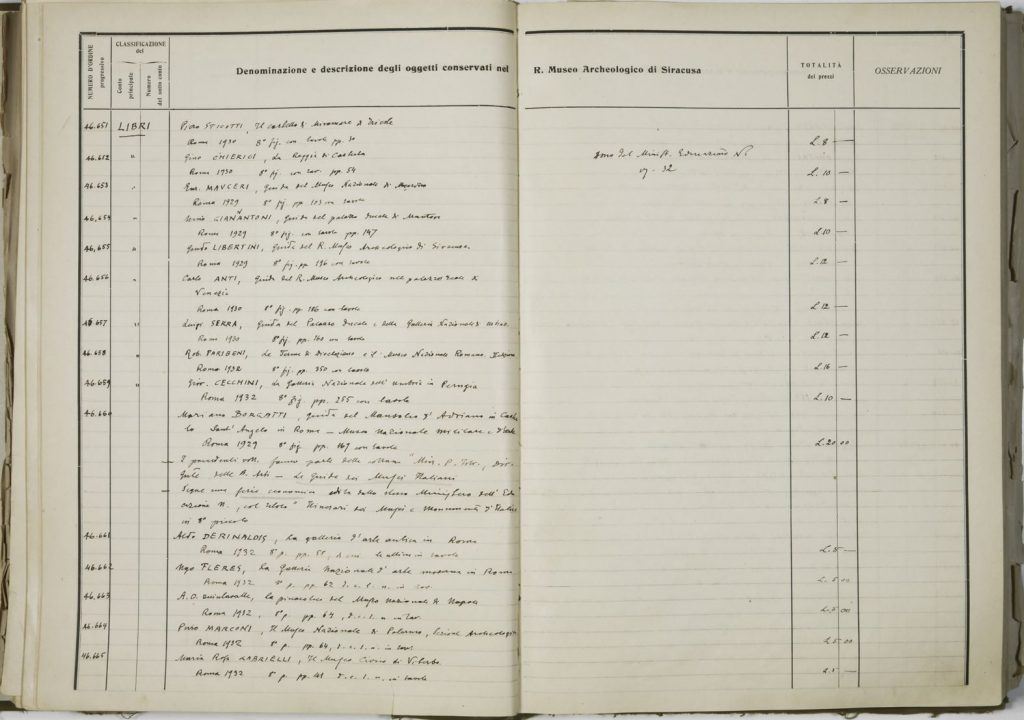 NUMERO D'ORDINE progressivo
CLASSIFICAZIONE del
Conto principale
Numero del sotto conto
Denominazione e descrizione degli oggetti conservati nel R. Museo Archeologico di Siracusa
TOTALITÀ dei prezzi
OSSERVAZIONI
46.651 LIBRI Piero STICOTTI, Il castello di Miramare di Trieste
Roma 1930 8° fig. con tavole pp. 30 L. 8 —
46.652 " Gino CHIERICI, La Reggia di Caserta Dono del Minist. Educazione N.
Roma 1930 8° fig. con tav. pp. 54 L. 10 —
46.653 " Enr. MAUCERI, Guida del Museo Nazionale di Messina
Roma 1929 8° fig. pp. con tavole L. 8 —
46,654 " GIANNANTONI, Guida del palazzo ducale di Mantova
Roma 1929 8° fig. con tavole pp. 147 L. 10 —
46,655 " Guido LIBERTINI, Guida del R. Museo Archeologico di Siracusa
Roma 1929 8° fig. pp. 196 con tavole L. 12 —
46.656 " Carlo ANTI, Guida del R. Museo Archeologico nel palazzo reale di
Venezia
Roma 1930 8° fig. pp. 186 con tavole L. 12 —
46.657 " Luigi SERRA, Guida del Palazzo Ducale e della Galleria Nazionale di Urbino
Roma 1930 8° fig. pp. 160 con tavole L. 12 —
46.658 " Rob. PARIBENI, Le Terme di Diocleziano e il Museo Nazionale Romano.
Roma 1932 8° fig. pp. 350 con tavole L. 16 —
46.659 " Giov. CECCHINI, La Galleria Nazionale dell'Umbria in Perugia
Roma 1932 8° fig. pp. 255 con tavole L. 10 —
46.660 Mariano BORGATTI, Guida del Mausoleo d'Adriano in Castel
lo Sant'Angelo in Roma — Museo Nazionale militare e d'arte
Roma 1929 8° fig. pp. 467 con tavole L. 20 00
— I precedenti voll. fanno parte della collana "Min. P. Istr., Dire
Gen.le delle B. Arti — Le Guide dei Musei Italiani
— Segue una serie economica edita dallo stesso Ministero dell'Edu
cazione N., col titolo "Itinerari dei Musei e Monumenti d'Italia
in 8° piccolo
46.661 Aldo DERINALDIS, La galleria d'arte antica in Roma
Roma 1932 8° p. pp. in tavole L. 5 —
46.662 Ugo FLERES, La Galleria Nazionale d'arte moderna in Roma
Roma 1932 8° p. pp. 62 d. c. l. n. in tav. L. 5 00
46.663 A. O. Quintavalle, La pinacoteca del Museo Nazionale di Napoli
Roma 1932, 8° p. pp. 64, d. c. l. n. in tav. L. 5 00
46.664 Pirro MARCONI, Il Museo Nazionale di Palermo, Sezione Archeologica
Roma 1932 8° p. pp. 64, d. c. l. n. in tav. L. 5 00
46.665 Maria Rosa GABRIELLI, Il Museo Civico di Viterbo
Roma 1932 8° p. pp. 48 d. c. l. n. in tavole L. 5 —